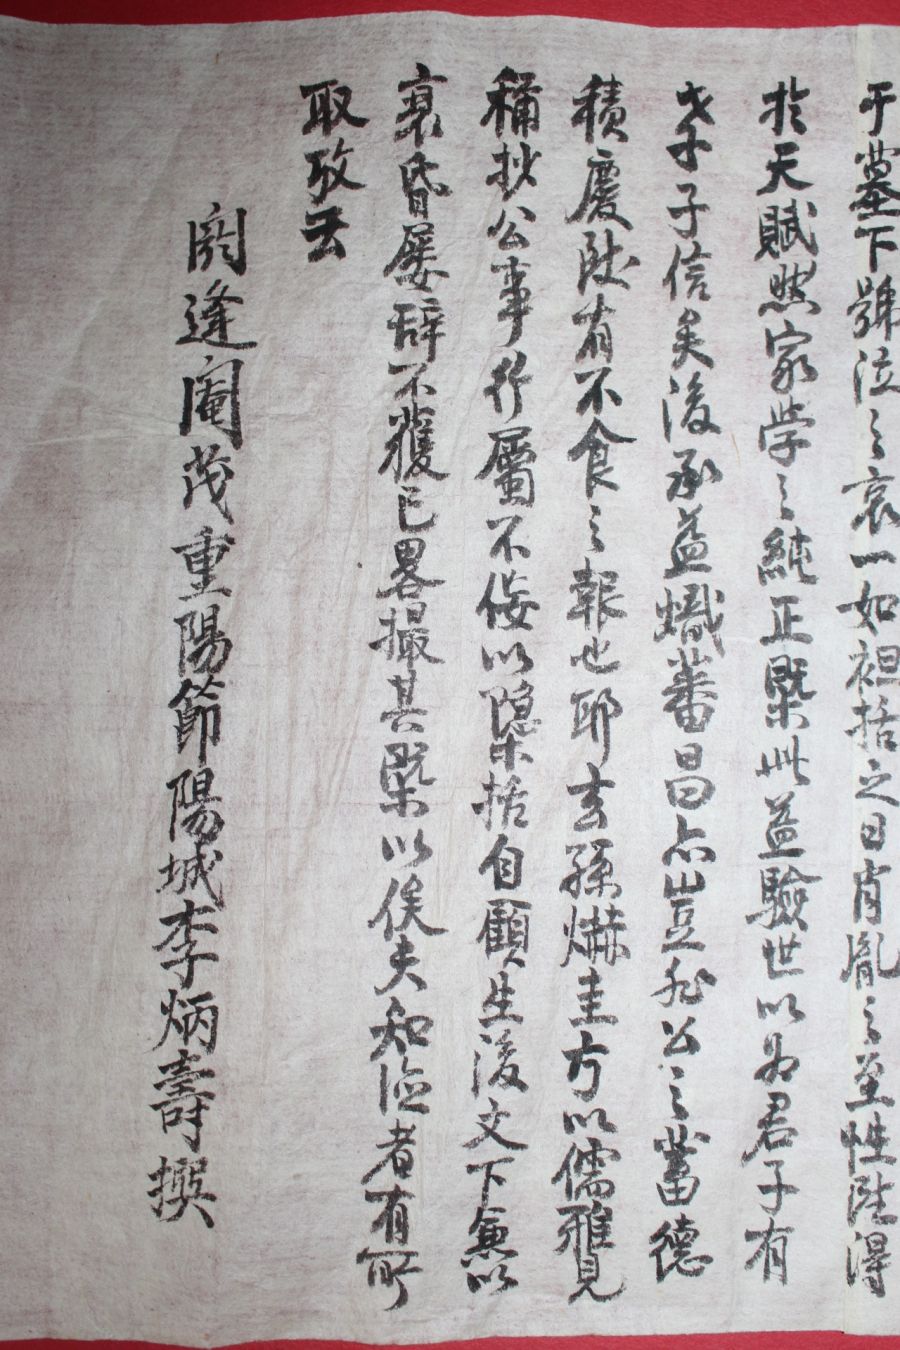 于墓下號泣之哀一如袒括之日肖胤之至性陞得
於天賦然家学之純正槩此益驗世以為君子有
子信矣後承益熾蕃昌亦豈非公之蓄德
積慶陞有不食之報也耶玄孫爀圭方以儒雅見
稱抄公事行屬不侫以隱括自顧生後文下兼以
衰昏屡辞不獲已畧撮其槩以俟夫知德者有所
取攷云
閼逢閹茂重陽節陽城李炳壽撰